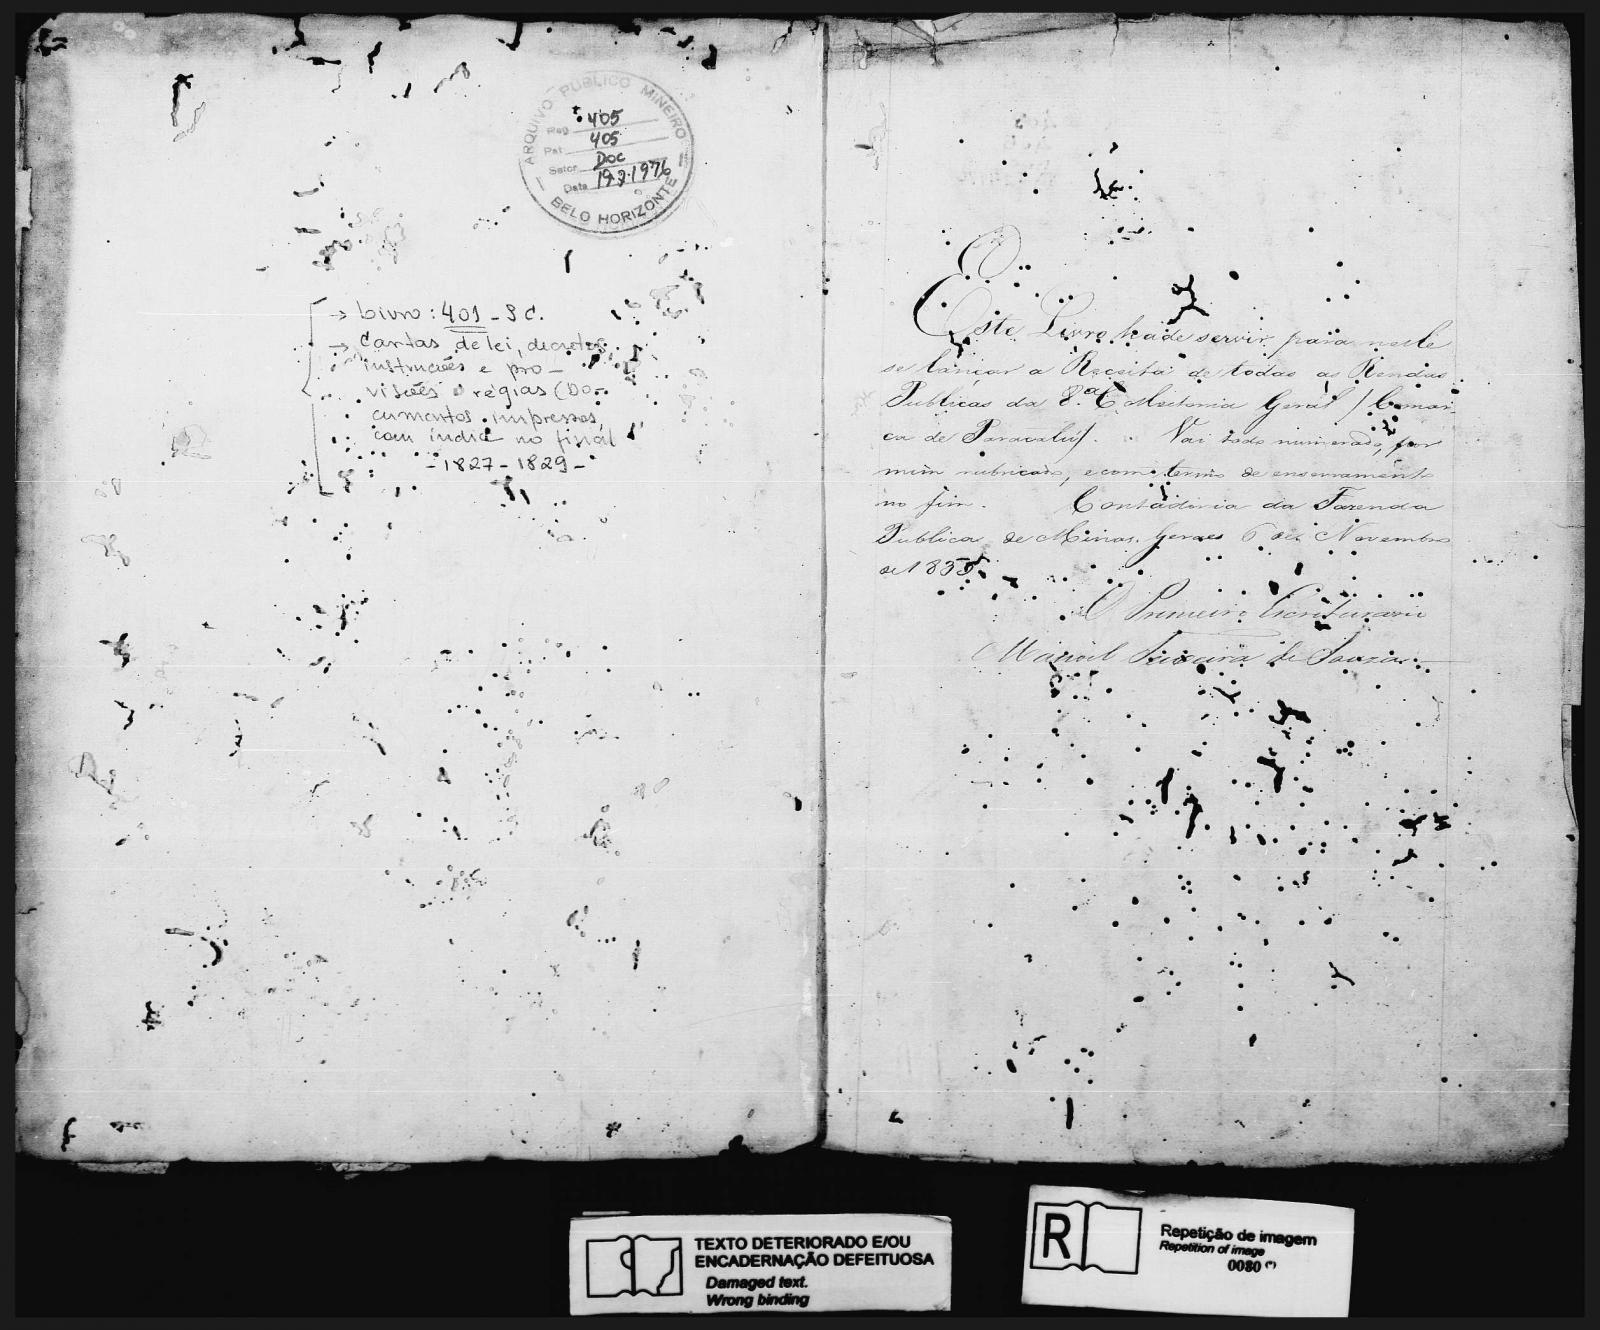 ARQUIVO PÚBLICO MINEIRO
Reg. 405
Pat. 405
Setor DOC
Data 19.3.1976
BELO HORIZONTE
→ Livro: 401 - S C.
→ Cartas de lei, decretos
instruções e pro-
visões régias (Do-
cumentos impressos,
com índice no final
- 1827 - 1829 -
Este Livro hade servir para nelle
se lançar a Receita de todas as Rendas
Publicas da 8.ª Colleitoria Geral / Comar
ca de Paracatú /. Vai todo numerado, por
mim rubricado, e com termo de enserramento
no fim. Contadoria da Fazenda
Publica de Minas Geraes 6 de Novembro
de 1835
O Primeiro Escriturario
Manoel Teixeira de Souza
TEXTO DETERIORADO E/OU
ENCADERNAÇÃO DEFEITUOSA
Damaged text.
Wrong binding
R
Repetição de imagem
Repetition of image
0080 (*)